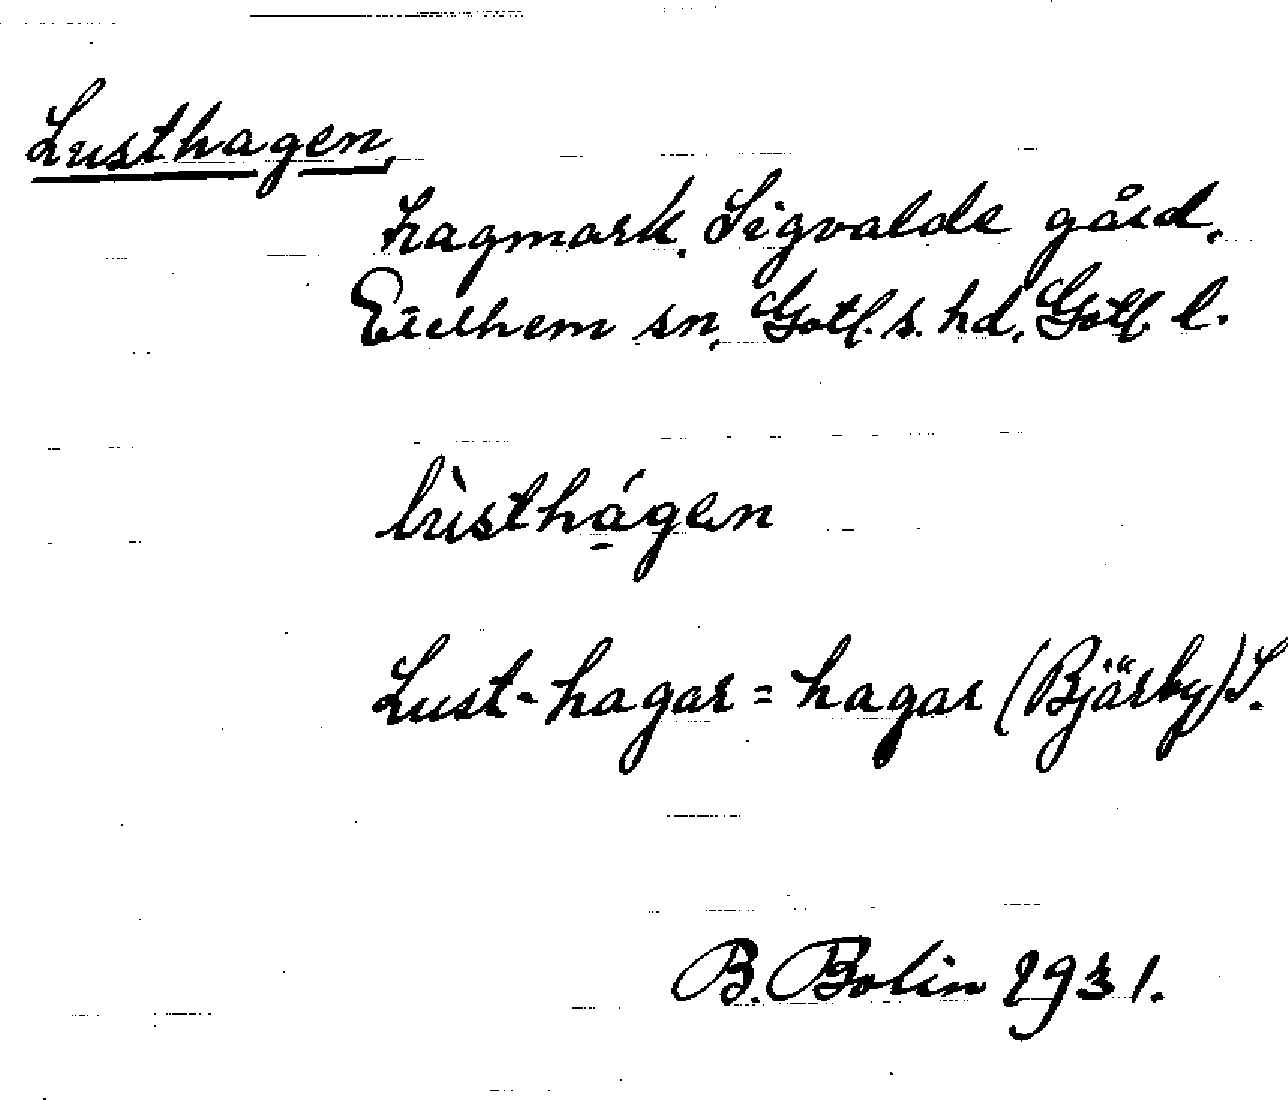 Lusthagen,
hagmark, Sigvalde gård,
Eidlhem sn, Gotl. s. hd, Gotl. l.
lùsthá̱gen
Lust-hagar = hagar (Bjärby) S.
B. Bolin 1931.